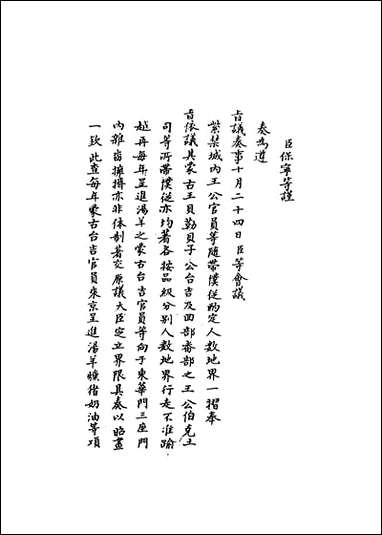 臣保寧等謹
奏為遵
旨議奏事十月二十四日臣等會議
紫禁城內王公官員等隨帶僕從酌定人數地界一摺奉
旨依議其蒙古王貝勒貝子公台吉及回部番部之王公伯克土
司等所帶僕從亦均著各按品級分別人數地界行走不准踰
越再每年呈進湯羊之蒙古台吉官員等向于東華門三座門
內雜沓擁擠亦非体制著交原議大臣定立界限具奏以昭畫
一欽此查每年蒙古台吉官員來京呈進湯羊臘猪奶油等項